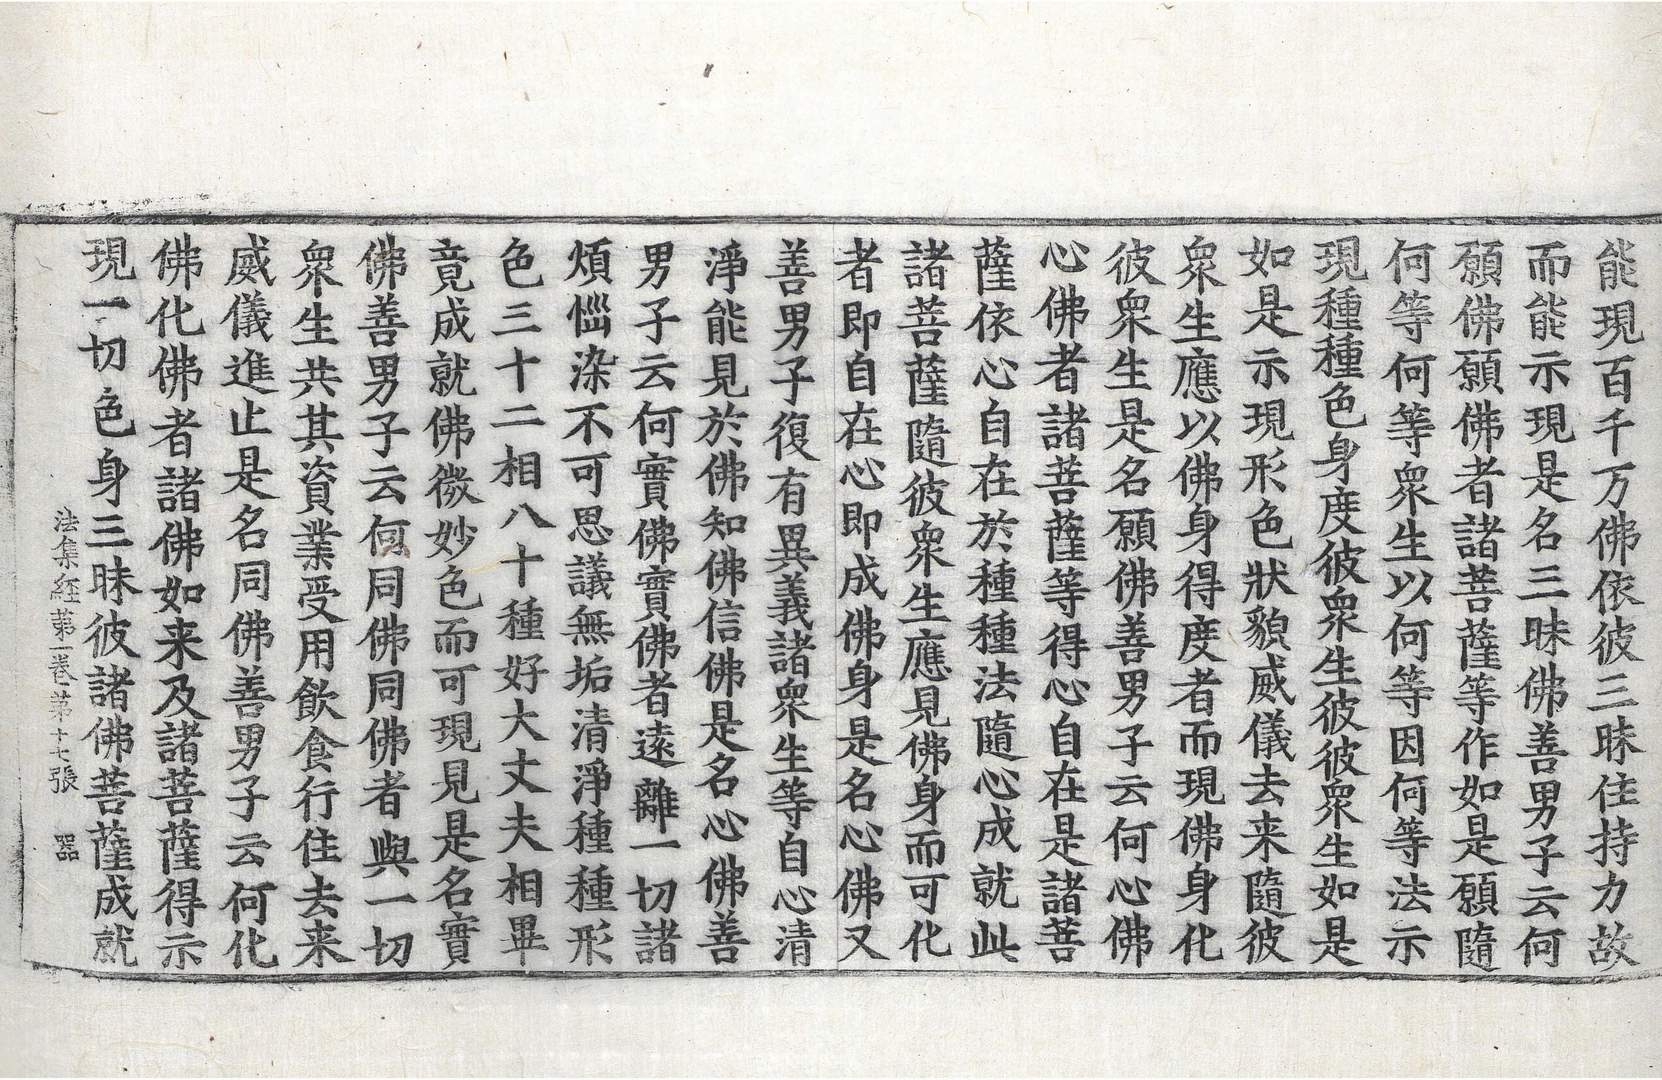 能現百千万佛依彼三昧住持力故
而能示現是名三昧佛善男子云何
願佛願佛者諸菩薩等作如是願隨
何等何等衆生以何等因何等法示
現種種色身度彼衆生彼彼衆生如是
如是示現形色狀貌威儀去来隨彼
衆生應以佛身得度者而現佛身化
彼衆生是名願佛善男子云何心佛
心佛者諸菩薩等得心自在是諸菩
薩依心自在於種種法隨心成就此
諸菩薩隨彼衆生應見佛身而可化
者即自在心即成佛身是名心佛又
善男子復有異義諸衆生等自心清
淨能見於佛知佛信佛是名心佛善
男子云何實佛實佛者遠離一切諸
煩惱染不可思議無垢清淨種種形
色三十二相八十種好大丈夫相畢
竟成就佛微妙色而可現見是名實
佛善男子云何同佛同佛者與一切
衆生共其資業受用飲食行住去来
威儀進止是名同佛善男子云何化
佛化佛者諸佛如来及諸菩薩得示
現一切色身三昧彼諸佛菩薩成就
法集経第一卷第十七張 器